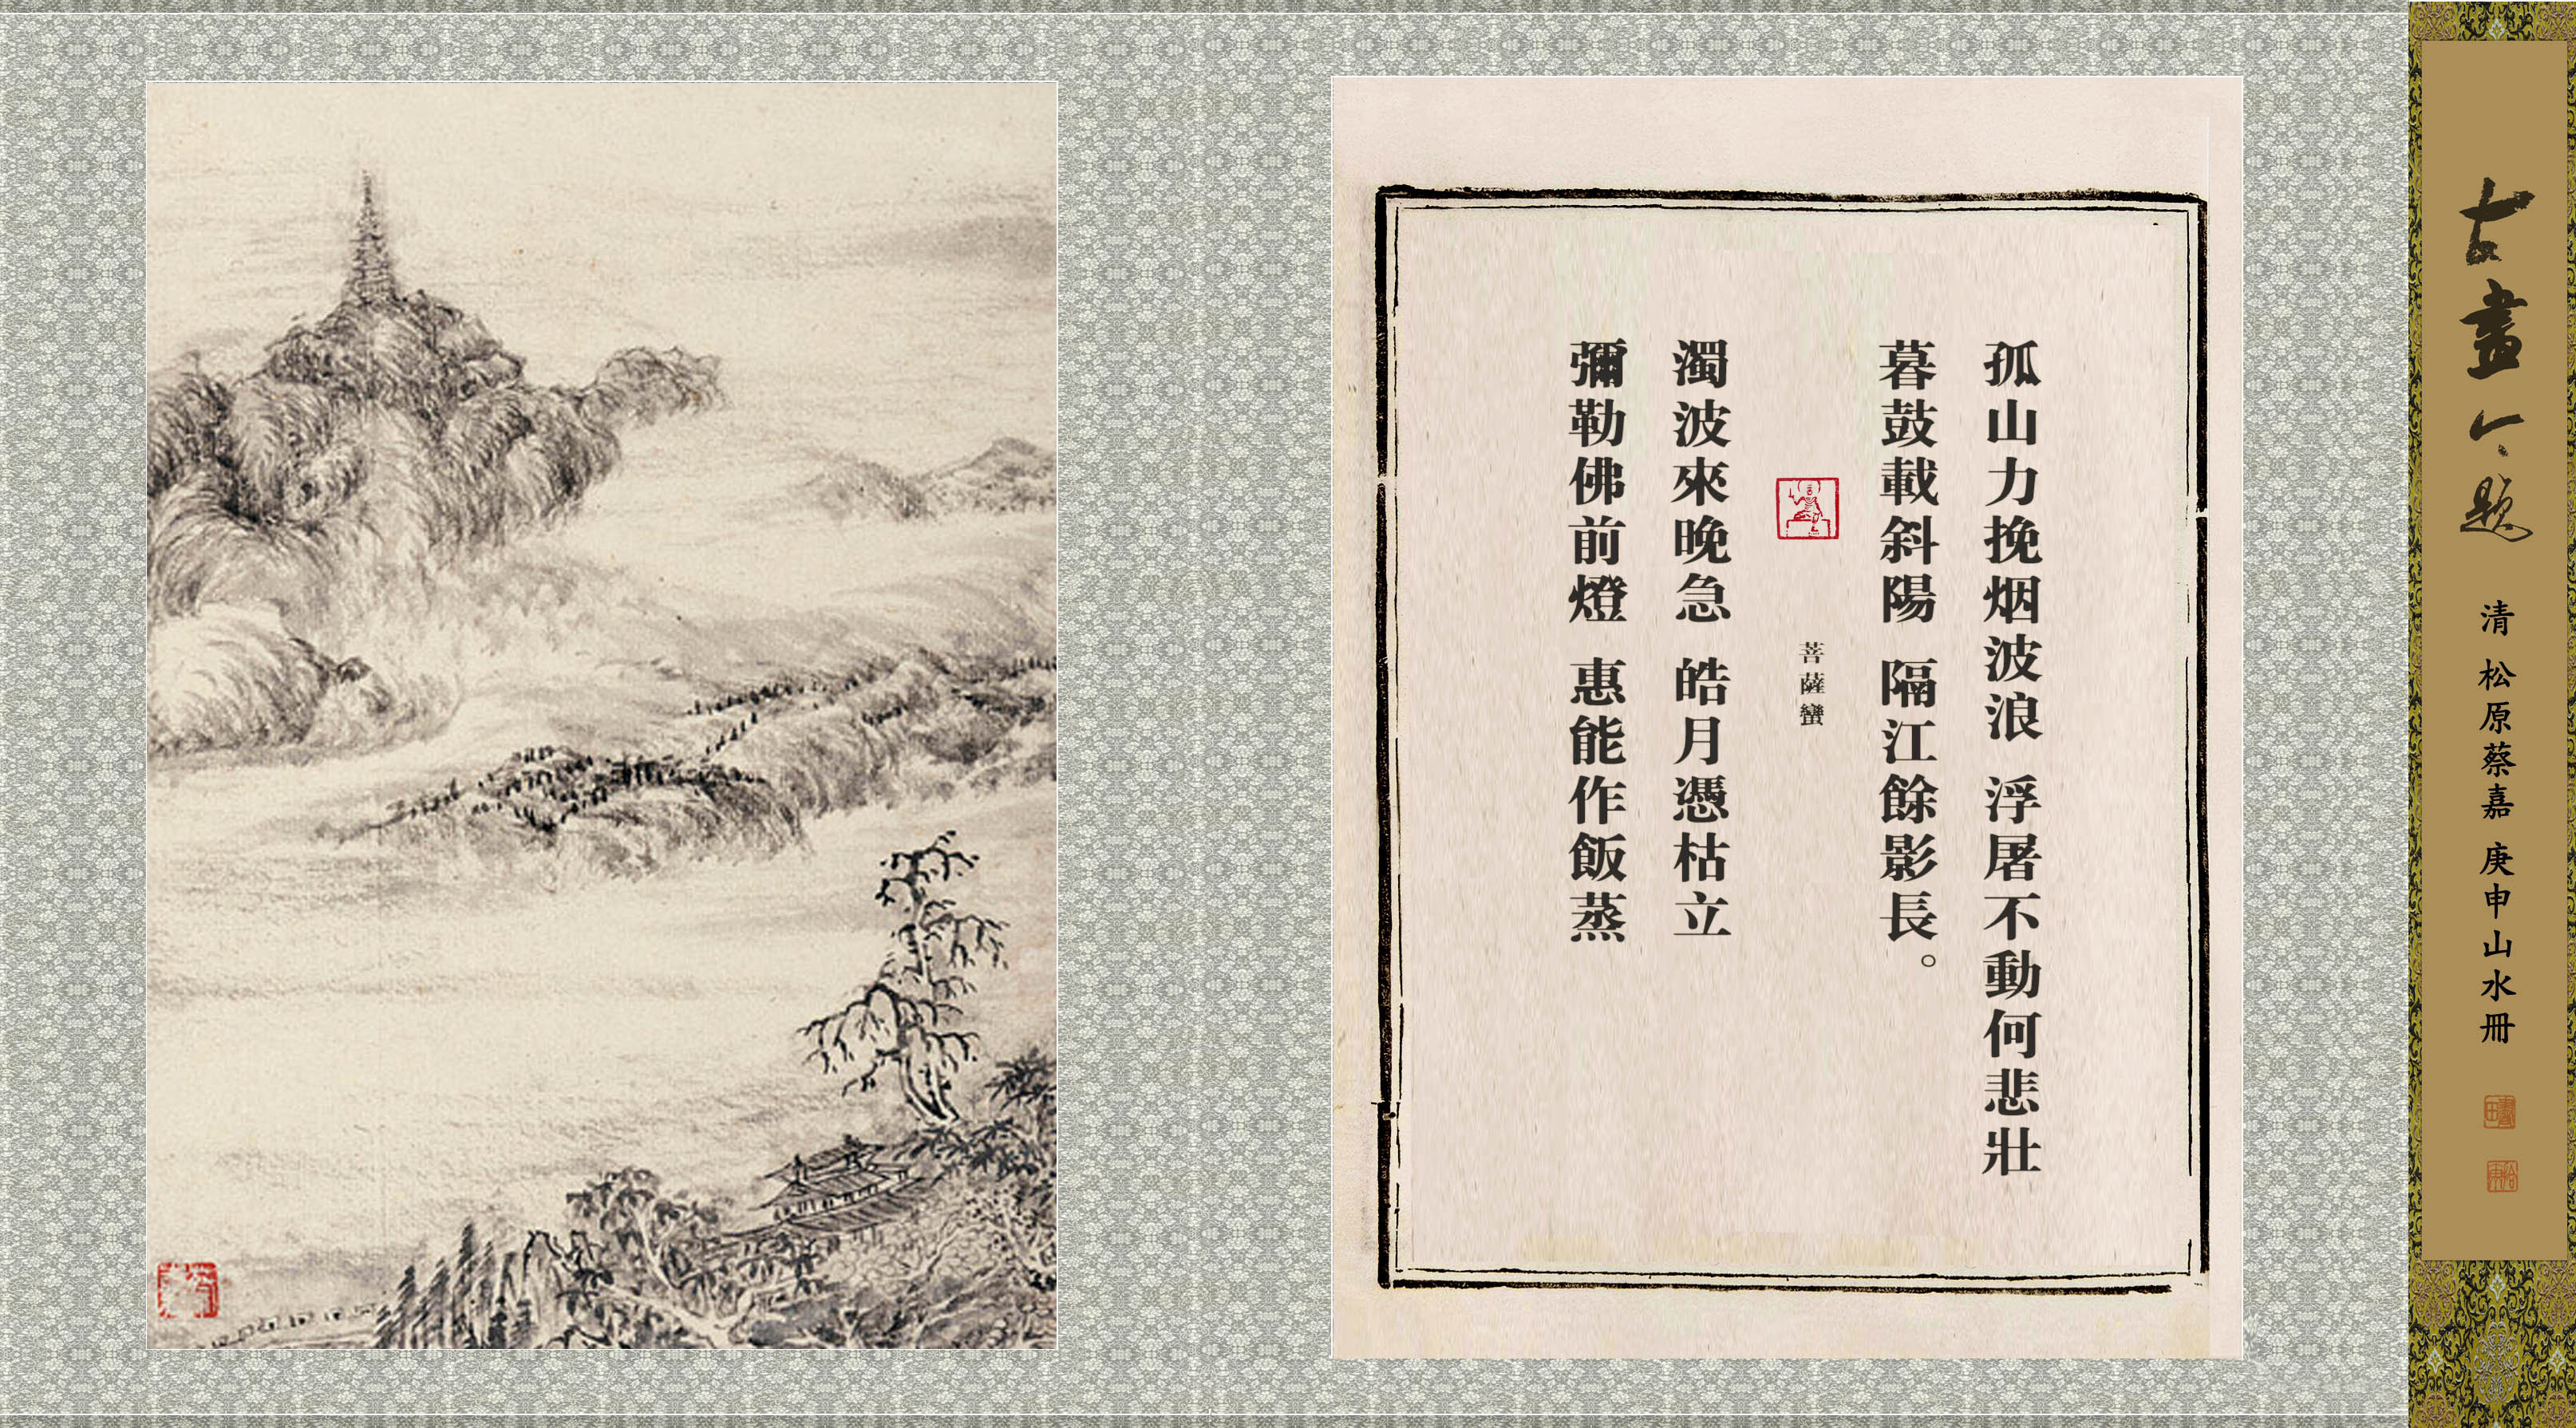 古畫今題
清 松原蔡嘉 庚申山水冊
孤山力挽烟波浪 浮屠不動何悲壯
暮鼓載斜陽 隔江餘影長。
菩薩蠻
濁波來晚急 皓月憑枯立
彌勒佛前燈 惠能作飯蒸